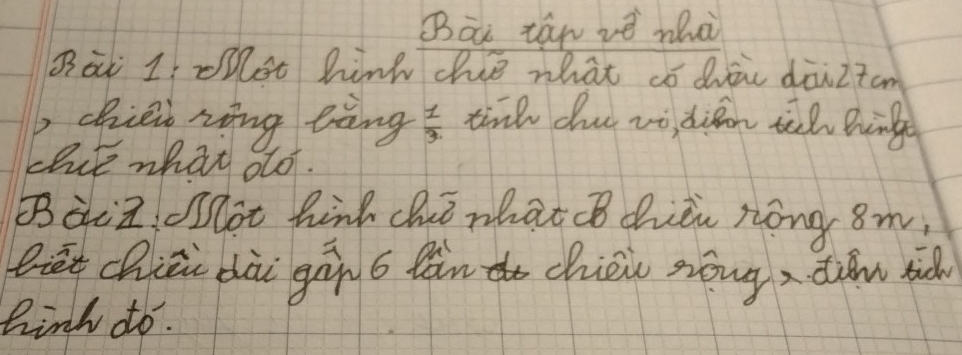 Bài tập về nhà
Bài 1: Một hình chữ nhật có chiều dài 27cm
, chiều rộng bằng 1/3 tính chu vi, diện tích hình
chữ nhật đó.
Bài 2: Một hình chữ nhật có chiều rộng 8m,
biết chiều dài gấp 6 lần chiều rộng, diện tích
hình đó.